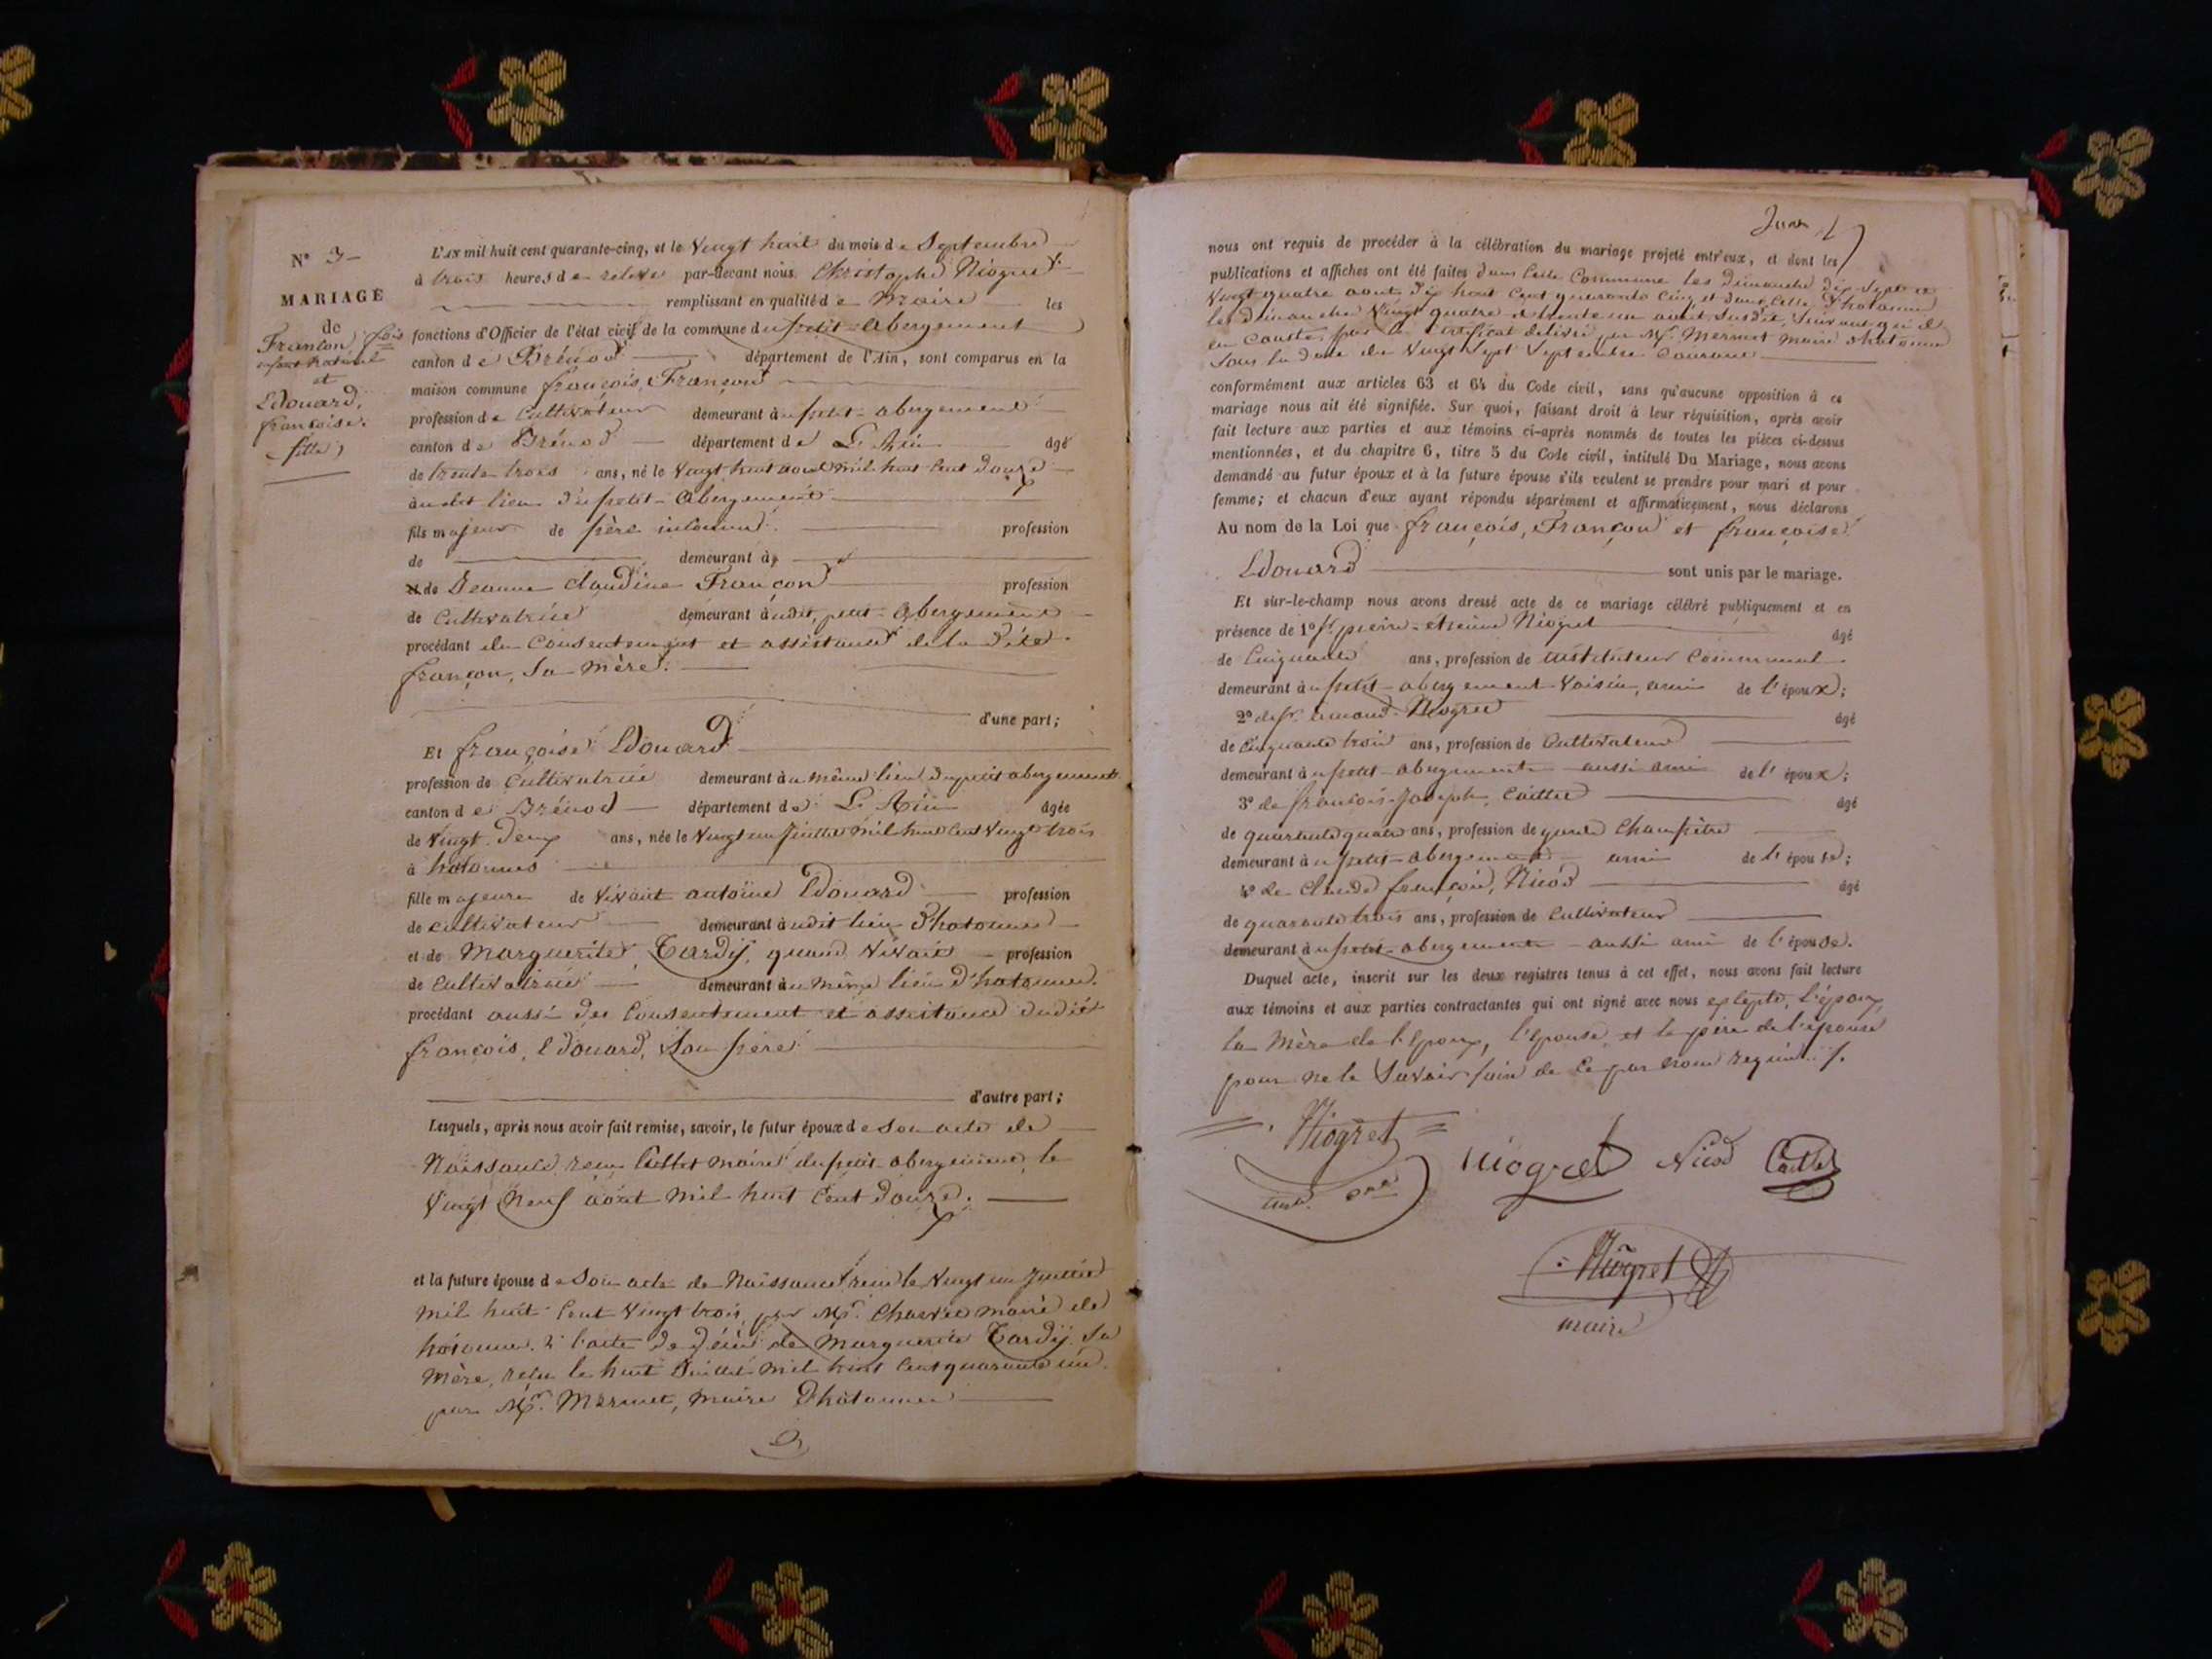 N° 3
MARIAGE
de
Françon, fçois
enfant naturel
et
Edouard,
françoise.
fille
L'an mil huit cent quarante-cinq, et le Vingt huit du mois de Septembre
à trois heures de relevée par-devant nous Christophe Niogret
remplissant en qualité de Maire les
fonctions d'Officier de l'état civil de la commune du petit-abergement
canton de Brénod département de l'Ain, sont comparus en la
maison commune françois, Françon
profession de Cultivateur demeurant au petit-abergement
canton de Brénod département de L'Ain âgé
de trente trois ans, né le Vingt huit aout mil huit Cent douze
au dit lieu du petit-Abergement
fils majeur de père inconnu profession
de demeurant à
et de Jeanne Claudine Françon profession
de Cultivatrice demeurant audit petit-abergement
procédant du Consentement et assistance de la dite
françon, Sa mère.
d'une part ;
Et françoise Edouard
profession de Cultivatrice demeurant au même lieu du petit abergement
canton de Brénod département de L'Ain âgée
de Vingt-deux ans, née le Vingt un Juillet mil huit Cent Vingt trois
à hotonnes
fille majeure de Vivant antoine Edouard profession
de Cultivateur demeurant audit lieu d'hotonnes
et de Marguerite Tardy, quand Vivait profession
de Cultivatrice demeurant au même lieu d'hotonnes.
procédant aussi du Consentement et assistance dudit
françois, Edouard, Son père
d'autre part ;
Lesquels, après nous avoir fait remise, savoir, le futur époux de Son acte de
Naissance, reçu Caillet maire du petit-abergement, le
Vingt Neuf août mil huit Cent douze.
et la future épouse de Son acte de Naissance reçu le Vingt un Juillet
mil huit Cent Vingt trois, par Mr. maire de
hotonnes. 2° l'acte de décès de Marguerite Tardy. Sa
Mère, reçu le huit Juillet mil huit Cent quarante un.
par Mr. Mermet, Maire d'hotonnes
nous ont requis de procéder à la célébration du mariage projeté entr'eux, et dont les
publications et affiches ont été faites dans Cette Commune les Dimanche dix-Sept et
Vingt quatre aout dix huit Cent quarante Cinq, et dans Celle d'hotonnes
les Dimanche Vingt quatre et trente un aout Susdit, Suivant qu'il
en Conste, par le Certificat délivré par Mr. Mermet maire d'hotonnes
Sous la date du Vingt Sept Septembre Courant
conformément aux articles 63 et 64 du Code civil, sans qu'aucune opposition à ce
mariage nous ait été signifiée. Sur quoi, faisant droit à leur réquisition, après avoir
fait lecture aux parties et aux témoins ci-après nommés de toutes les pièces ci-dessus
mentionnées, et du chapitre 6, titre 5 du Code civil, intitulé Du Mariage, nous avons
demandé au futur époux et à la future épouse s'ils veulent se prendre pour mari et pour
femme ; et chacun d'eux ayant répondu séparément et affirmativement, nous déclarons
Au nom de la Loi que françois, Françon et françoise
Edouard sont unis par le mariage.
Et sur-le-champ nous avons dressé acte de ce mariage célébré publiquement et en
présence de 1° Sr. pierre-etienne Niogret âgé
de Cinquante ans, profession de instituteur Communal
demeurant au petit-abergement Voisin, ami de l'époux ;
2° de Sr. Niogret âgé
de Cinquante trois ans, profession de Cultivateur
demeurant au petit-abergement aussi ami de l'époux ;
3° de françois-Joseph, Caillet âgé
de quarante quatre ans, profession de garde Champêtre
demeurant au petit-abergement ami de l'épouse ;
4° de Claude françois, Nicod âgé
de quarante trois ans, profession de Cultivateur
demeurant au petit-abergement aussi ami de l'épouse.
Duquel acte, inscrit sur les deux registres tenus à cet effet, nous avons fait lecture
aux témoins et aux parties contractantes qui ont signé avec nous excepté, L'époux,
la Mère de l'époux, l'épouse et le père de l'épouse
pour ne le Savoir faire de Ce par nous requis /.
Niogret Niogret Nicod Caillet
Niogret
maire